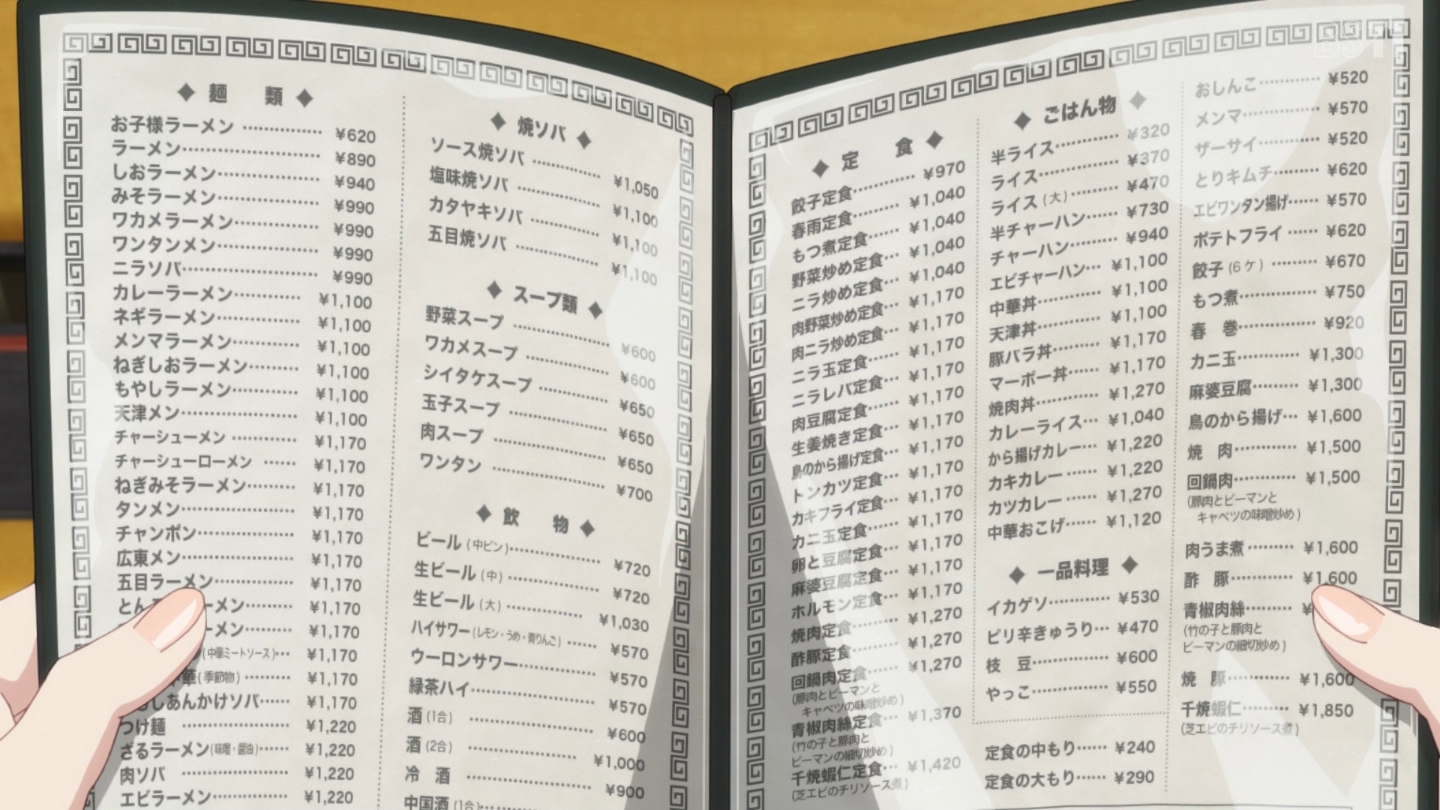 ◆ 麺 類 ◆
お子様ラーメン ¥620
ラーメン ¥890
しおラーメン ¥940
みそラーメン ¥990
ワカメラーメン ¥990
ワンタンメン ¥990
ニラソバ ¥990
カレーラーメン ¥1,100
ネギラーメン ¥1,100
メンマラーメン ¥1,100
ねぎしおラーメン ¥1,100
もやしラーメン ¥1,100
天津メン ¥1,100
チャーシューメン ¥1,170
チャーシューローメン ¥1,170
ねぎみそラーメン ¥1,170
タンメン ¥1,170
チャンポン ¥1,170
広東メン ¥1,170
五目ラーメン ¥1,170
とん ーメン ¥1,170
ーメン ¥1,170
(中華ミートソース) ¥1,170
華(季節物) ¥1,170
しあんかけソバ ¥1,170
つけ麺 ¥1,220
ざるラーメン(味噌・醤油) ¥1,220
肉ソバ ¥1,220
エビラーメン ¥1,220
◆ 焼ソバ ◆
ソース焼ソバ ¥1,050
塩味焼ソバ ¥1,100
カタヤキソバ ¥1,100
五目焼ソバ ¥1,100
◆ スープ類 ◆
野菜スープ ¥600
ワカメスープ ¥600
シイタケスープ ¥650
玉子スープ ¥650
肉スープ ¥650
ワンタン ¥700
◆ 飲 物 ◆
ビール(中ビン) ¥720
生ビール(中) ¥720
生ビール(大) ¥1,030
ハイサワー(レモン・うめ・青りんご) ¥570
ウーロンサワー ¥570
緑茶ハイ ¥570
酒(1合) ¥600
酒(2合) ¥1,000
冷 酒 ¥900
中国酒(1合)
◆ 定 食 ◆
餃子定食 ¥970
春雨定食 ¥1,040
もつ煮定食 ¥1,040
野菜炒め定食 ¥1,040
ニラ炒め定食 ¥1,040
肉野菜炒め定食 ¥1,170
肉ニラ炒め定食 ¥1,170
ニラ玉定食 ¥1,170
ニラレバ定食 ¥1,170
肉豆腐定食 ¥1,170
生姜焼き定食 ¥1,170
鳥のから揚げ定食 ¥1,170
トンカツ定食 ¥1,170
カキフライ定食 ¥1,170
カニ玉定食 ¥1,170
卵と豆腐定食 ¥1,170
麻婆豆腐定食 ¥1,170
ホルモン定食 ¥1,170
焼肉定食 ¥1,270
酢豚定食 ¥1,270
回鍋肉定食 ¥1,270
(豚肉とピーマンと
キャベツの味噌炒め)
青椒肉絲定食 ¥1,370
(竹の子と豚肉と
ピーマンの細切炒め)
千焼蝦仁定食 ¥1,420
(芝エビのチリソース煮)
◆ ごはん物 ◆
半ライス ¥320
ライス ¥370
ライス(大) ¥470
半チャーハン ¥730
チャーハン ¥940
エビチャーハン ¥1,100
中華丼 ¥1,100
天津丼 ¥1,100
豚バラ丼 ¥1,170
マーボー丼 ¥1,170
焼肉丼 ¥1,270
カレーライス ¥1,040
から揚げカレー ¥1,220
カキカレー ¥1,220
カツカレー ¥1,270
中華おこげ ¥1,120
◆ 一品料理 ◆
イカゲソ ¥530
ピリ辛きゅうり ¥470
枝 豆 ¥600
やっこ ¥550
定食の中もり ¥240
定食の大もり ¥290
おしんこ ¥520
メンマ ¥570
ザーサイ ¥520
とりキムチ ¥620
エビワンタン揚げ ¥570
ポテトフライ ¥620
餃子(6ケ) ¥670
もつ煮 ¥750
春 巻 ¥920
カニ玉 ¥1,300
麻婆豆腐 ¥1,300
鳥のから揚げ ¥1,600
焼 肉 ¥1,500
回鍋肉 ¥1,500
(豚肉とピーマンと
キャベツの味噌炒め)
肉うま煮 ¥1,600
酢 豚 ¥1,600
青椒肉絲 ¥
(竹の子と豚肉と
ピーマンの細切炒め)
焼 豚 ¥1,600
千焼蝦仁 ¥1,850
(芝エビのチリソース煮)